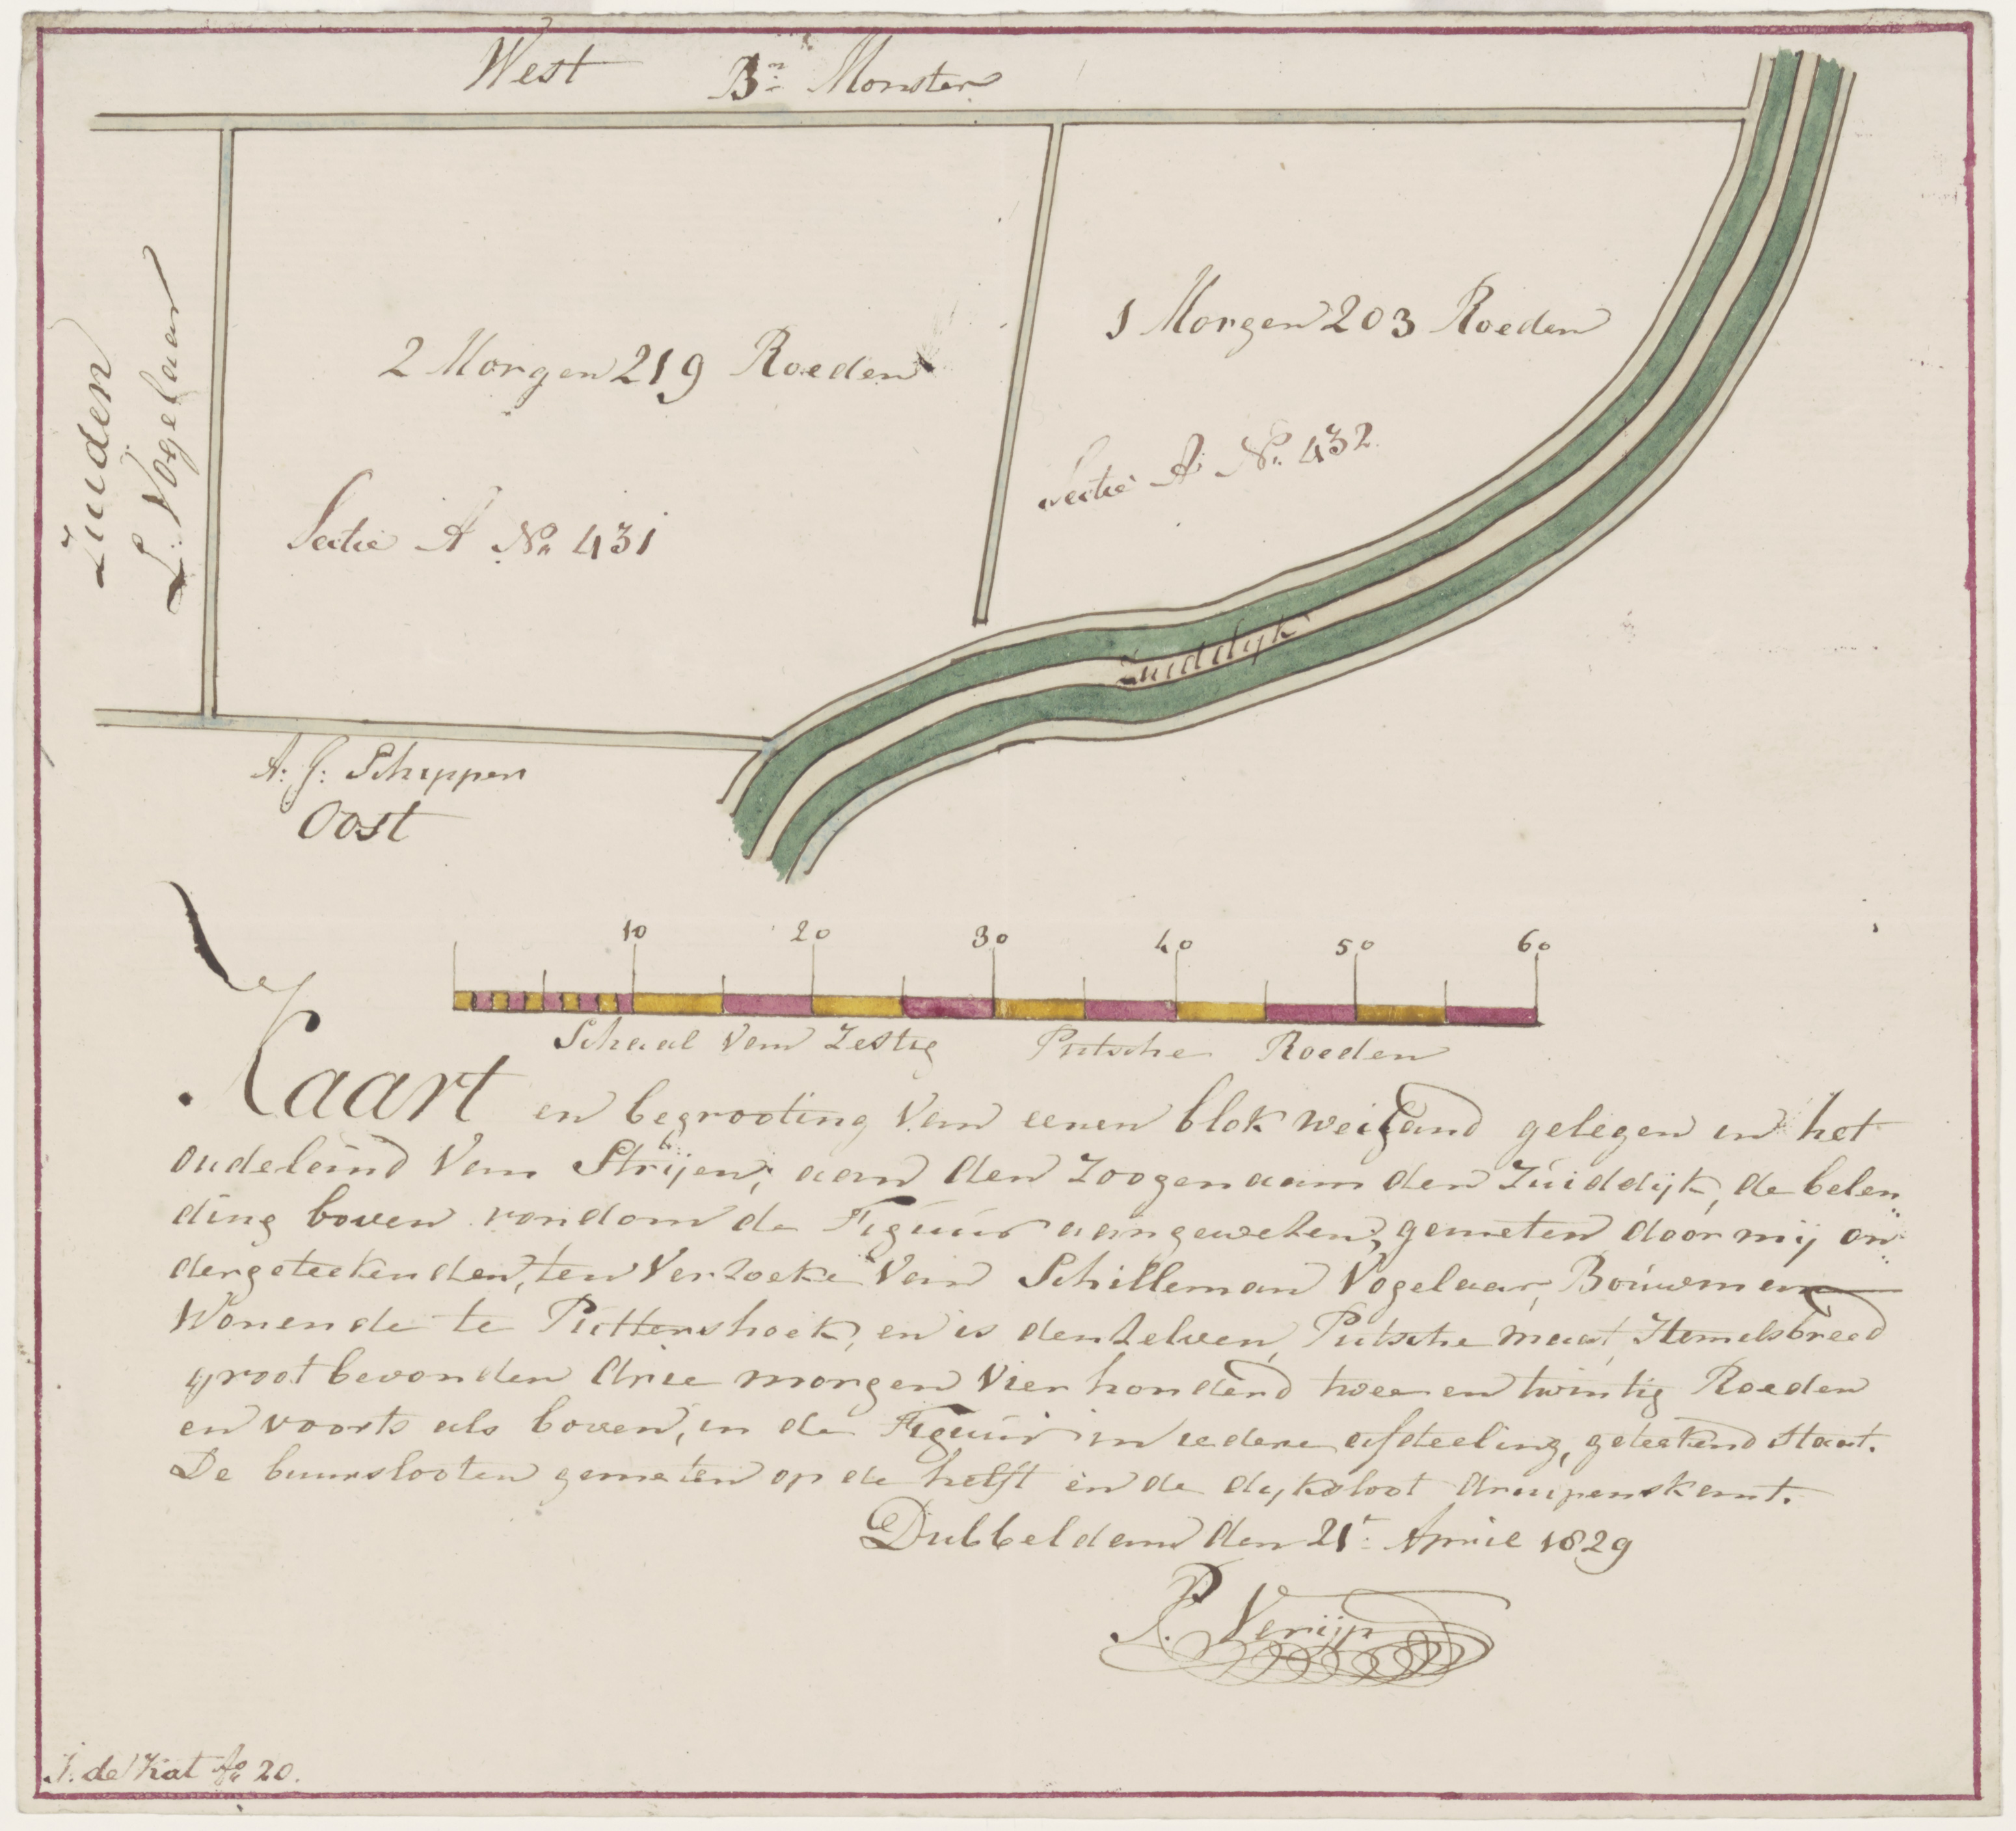 West Bn: Monster
Zuiden
L: Vogelaar
2 Morgen 219 Roeden
1 Morgen 203 Roeden
Sectie A No 432
Sectie A No 431
Zuiddijk
A: J: Schippers
Oost
10 20 30 40 50 60
Schaal van Zestig Putsche Roeden
Kaart en begrooting van eenen blok weiland gelegen in het
oudeleind van Strijen; aan den Zoogenaamden Zuiddijk, de belen
ding boven rondom de Figuur aangewezen, gemeten door mij on
dergeteekenden, ten Verzoeke van Schilleman Vogelaar, Bouwman
Wonende te Puttershoek, en is denzelven, Putsche maat, Hemelsbreed
groot bevonden drie morgen vier honderd twee en twintig Roeden
en voorts als boven, in de Figuur in iedere afdeeling, geteekend staat.
De buurslooten gemeten op de helft en de dijksloot druipenskant.
Dubbeldam den 21t: April 1829
P. Verijp
J. de Kat fo 20.